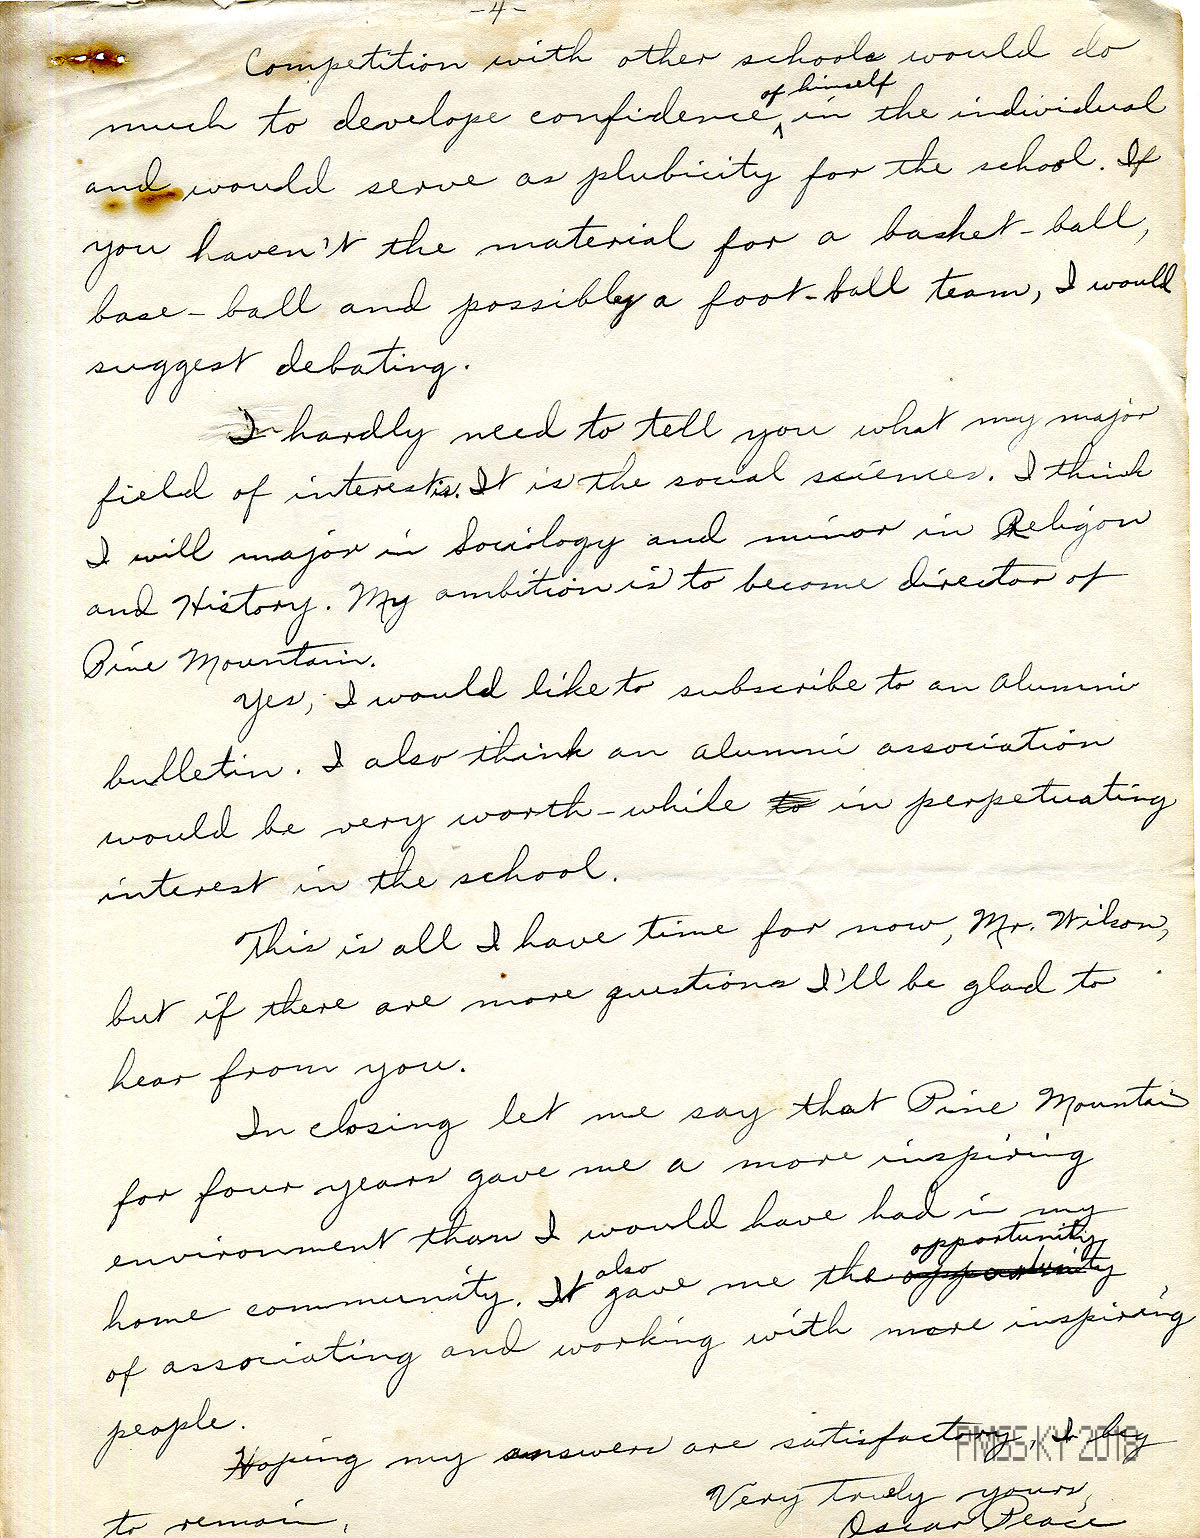 -4-
Competition with other schools would do
of himself
much to develope confidence in the individual
and would serve as plubicity for the school. If
you haven't the material for a basket-ball,
base-ball and possibly a foot-ball team, I would
suggest debating.
I hardly need to tell you what my major
field of interest is. It is the social sciences. I think
I will major in Sociology and minor in Religon
and History. My ambition is to become director of
Pine Mountain.
Yes, I would like to subscribe to an alumni
bulletin. I also think an alumni association
would be very worth-while to in perpetuating
interest in the school.
This is all I have time for now, Mr. Wilson,
but if there are more questions I'll be glad to
hear from you.
In closing let me say that Pine Mountain
for four years gave me a more inspiring
environment than I would have had in my
also opportunity
home community. It gave me the opportunity
of associating and working with more inspiring
people.
Hoping my answers are satisfactory, I beg
PMSS KY 2016
to remain, Very truly yours,
Oscar Peace